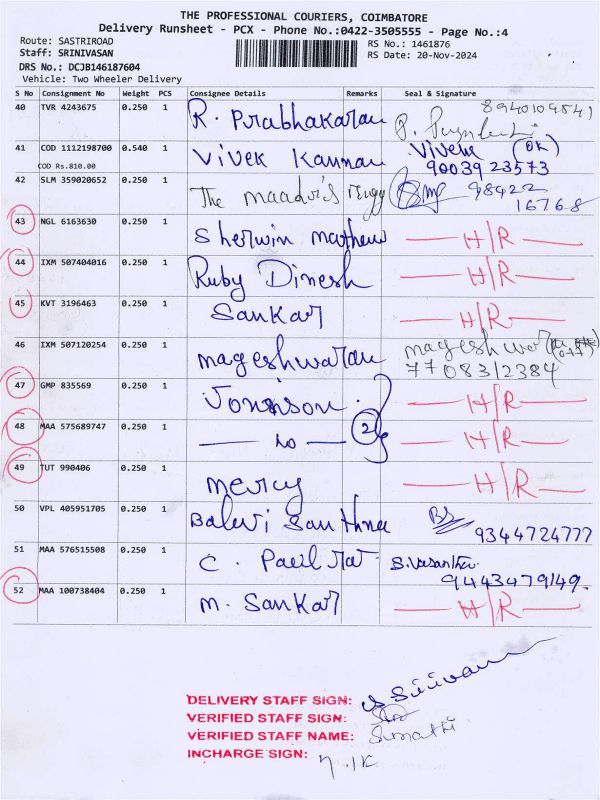 THE PROFESSIONAL COURIERS, COIMBATORE
Delivery Runsheet - PCX - Phone No.:0422-3505555 - Page No.:4
Route: SASTRIROAD
Staff: SRINIVASAN
DRS No.: DCJB146187604
Vehicle: Two Wheeler Delivery
RS No.: 1461876
RS Date: 20-Nov-2024
S No Consignment No Weight PCS Consignee Details Remarks Seal & Signature
40 TVR 4243675 0.250 1 R. Prabhakaran 8940109841
41 COD 1112198700 0.540 1 Vivek Kannan Vivek (OK)
COD Rs.810.00 9003923573
42 SLM 359020652 0.250 1 The maadvi's 98422
16768
43 NGL 6163630 0.250 1 Sherwin mathew H/R
44 IXM 507404016 0.250 1 Ruby Dinesh H/R
45 KVT 3196463 0.250 1 Sankar H/R
46 IXM 507120254 0.250 1 mageshwaran mageshwaran
7708312384
47 GMP 835569 0.250 1 Jonnson H/R
48 MAA 575689747 0.250 1 2 H/R
49 TUT 990406 0.250 1 mercy H/R
50 VPL 405951705 0.250 1 9344724777
51 MAA 576515508 0.250 1 C. S. Vasantha
9443479149.
52 MAA 100738404 0.250 1 m. Sankar H/R
DELIVERY STAFF SIGN:
VERIFIED STAFF SIGN:
VERIFIED STAFF NAME: Sumathi
INCHARGE SIGN: